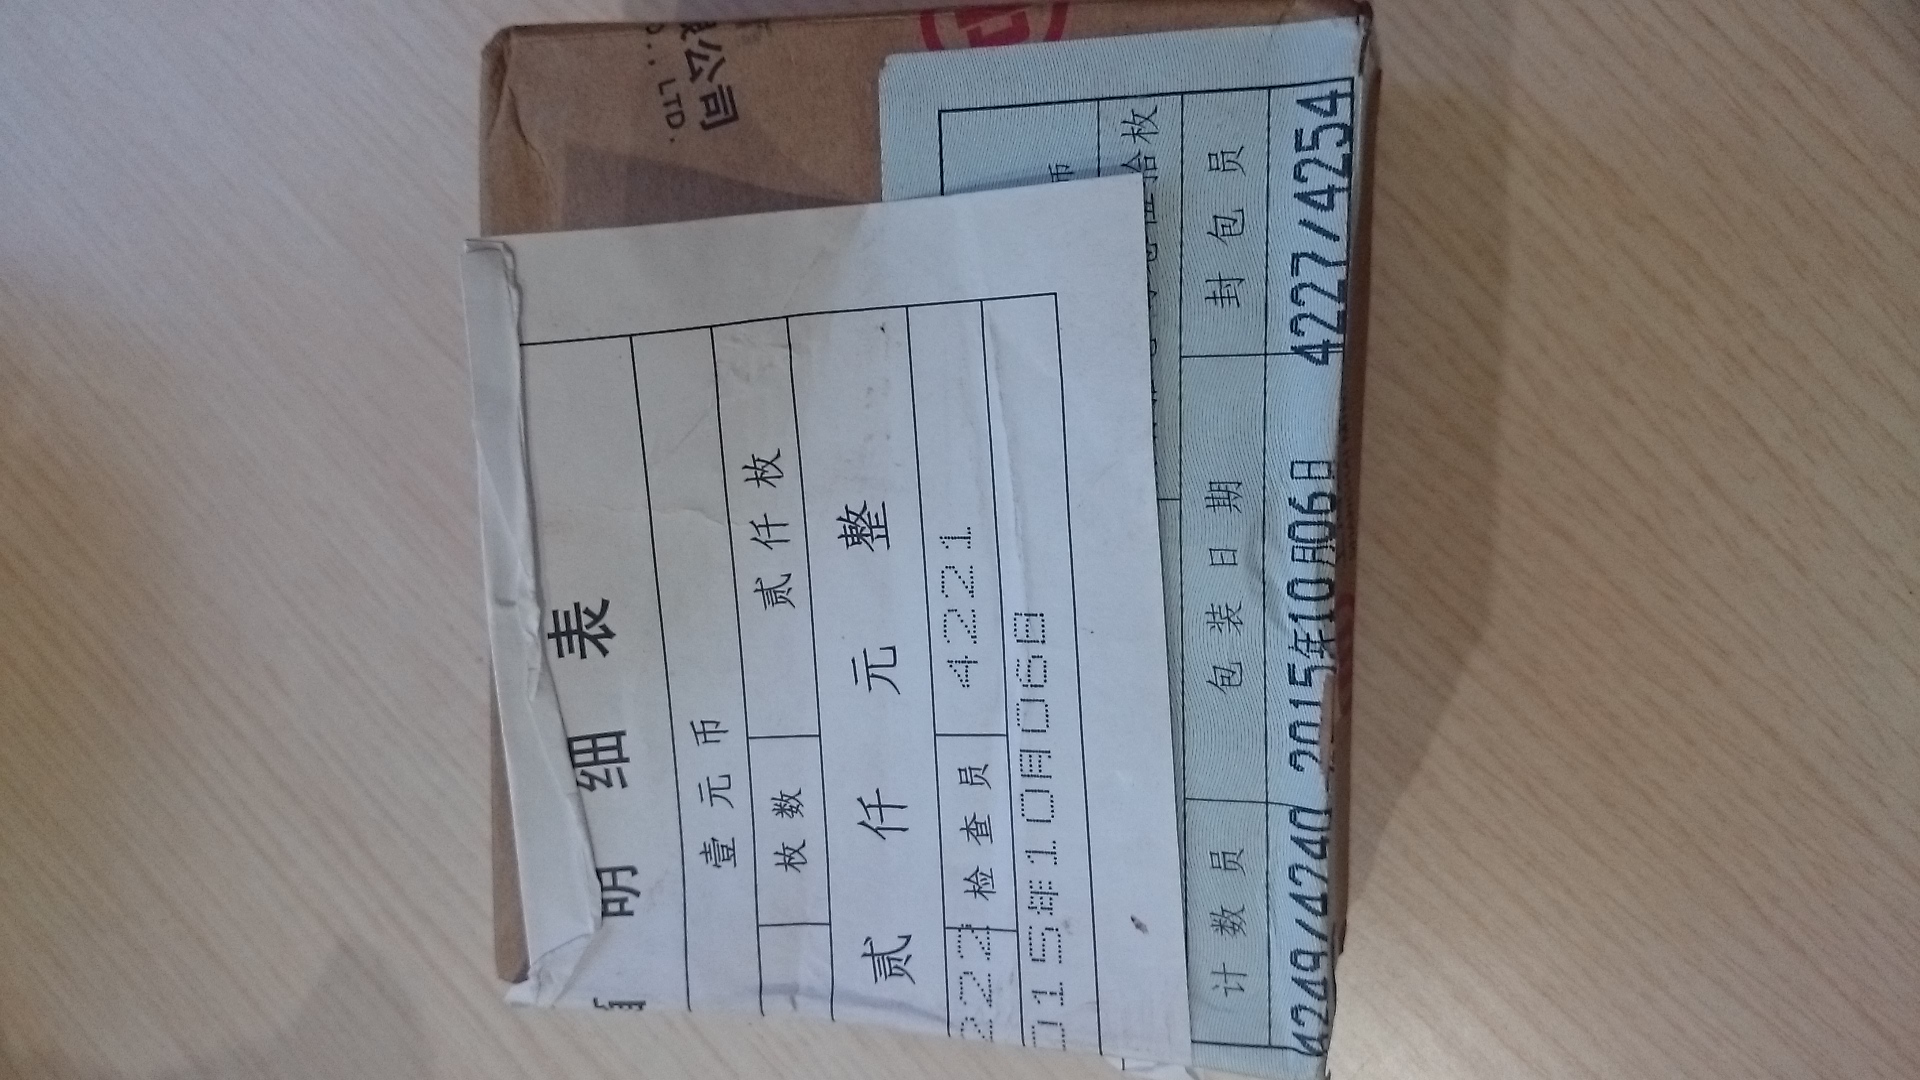 限公司
., LTD.
明细表
壹元币
枚数 贰仟枚
贰仟元整
222 检查员 4221
015年10月06日
币
拾枚
计数员 包装日期 封包员
4249/4240 2015年10月06日 4227/4254